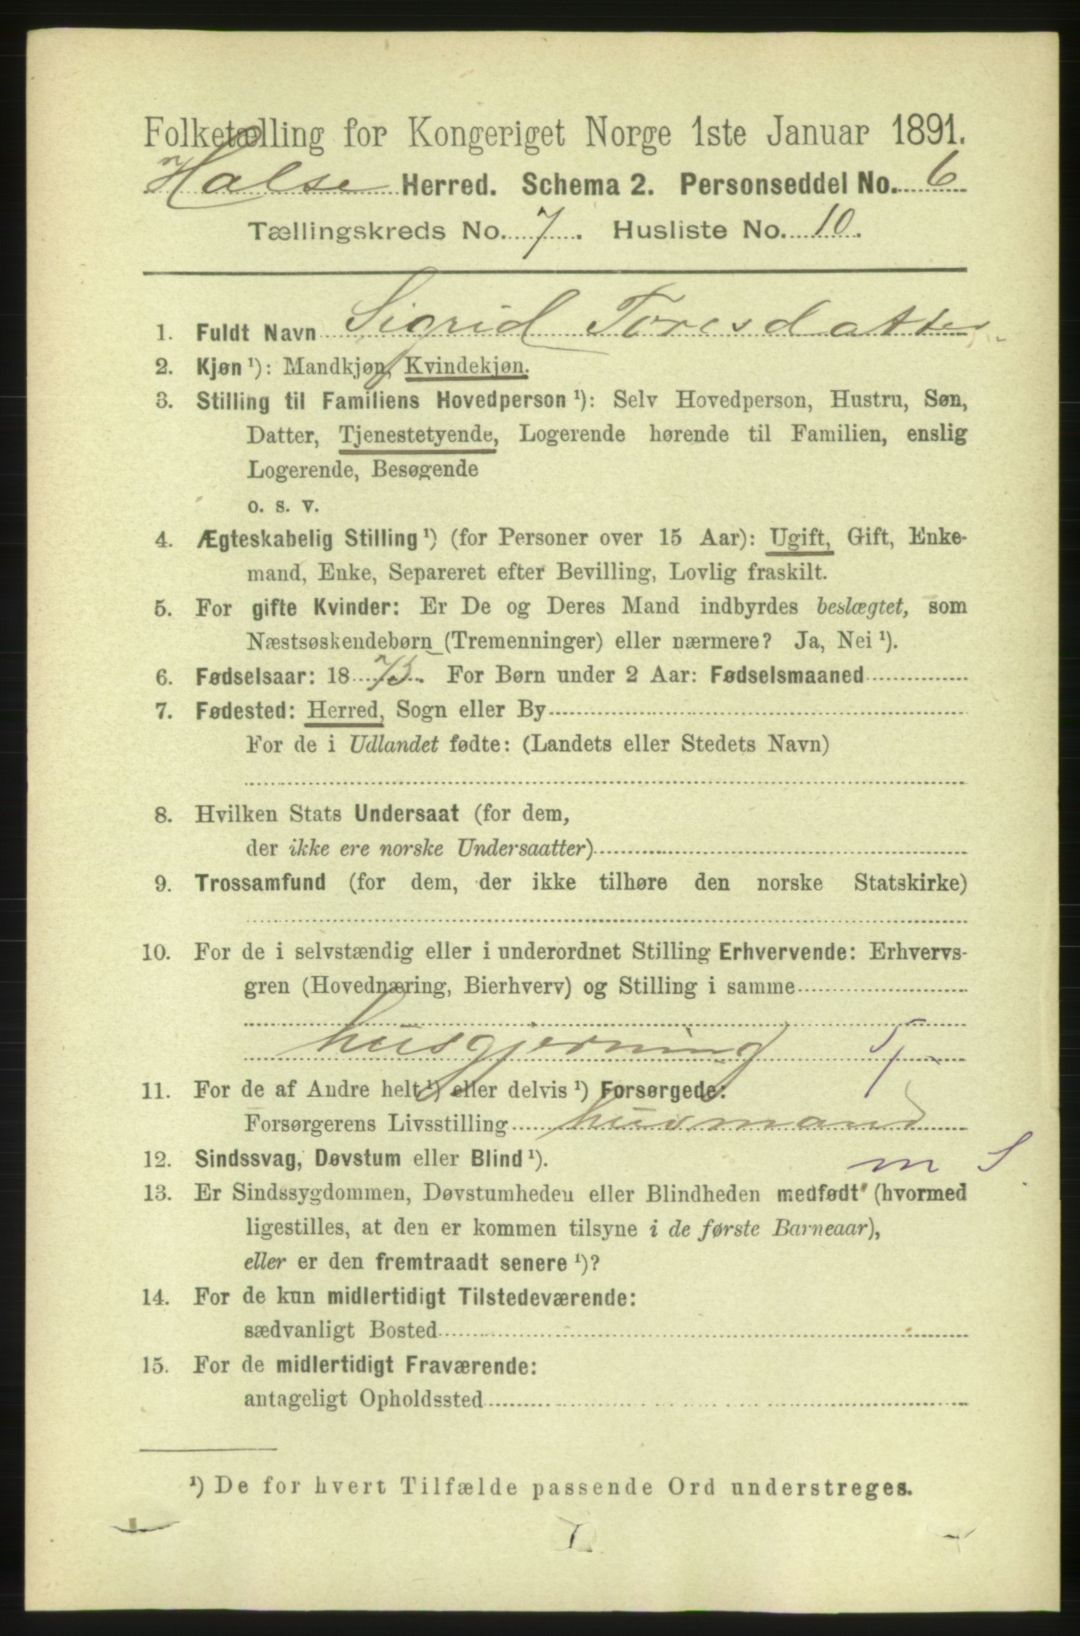 Folketælling for Kongeriget Norge 1ste Januar 1891.
Halse Herred. Schema 2. Personseddel No. 6
Tællingskreds No. 7. Husliste No. 10.
1. Fuldt Navn Sigrid Toresdatter
2. Kjøn ¹): Mandkjøn, Kvindekjøn.
3. Stilling til Familiens Hovedperson ¹): Selv Hovedperson, Hustru, Søn,
Datter, Tjenestetyende, Logerende hørende til Familien, enslig
Logerende, Besøgende
o. s. v.
4. Ægteskabelig Stilling ¹) (for Personer over 15 Aar): Ugift, Gift, Enke-
mand, Enke, Separeret efter Bevilling, Lovlig fraskilt.
5. For gifte Kvinder: Er De og Deres Mand indbyrdes beslægtet, som
Næstsøskendebørn (Tremenninger) eller nærmere? Ja, Nei ¹).
6. Fødselsaar: 1873. For Børn under 2 Aar: Fødselsmaaned
7. Fødested: Herred, Sogn eller By
For de i Udlandet fødte: (Landets eller Stedets Navn)
8. Hvilken Stats Undersaat (for dem,
der ikke ere norske Undersaatter)
9. Trossamfund (for dem, der ikke tilhøre den norske Statskirke)
10. For de i selvstændig eller i underordnet Stilling Erhvervende: Erhvervs-
gren (Hovednæring, Bierhverv) og Stilling i samme
husgjerning
11. For de af Andre helt ¹) eller delvis ¹) Forsørgede:
Forsørgerens Livsstilling husmand
12. Sindssvag, Døvstum eller Blind ¹). m S
13. Er Sindssygdommen, Døvstumheden eller Blindheden medfødt (hvormed
ligestilles, at den er kommen tilsyne i de første Barneaar),
eller er den fremtraadt senere ¹)?
14. For de kun midlertidigt Tilstedeværende:
sædvanligt Bosted
15. For de midlertidigt Fraværende:
antageligt Opholdssted
¹) De for hvert Tilfælde passende Ord understreges.